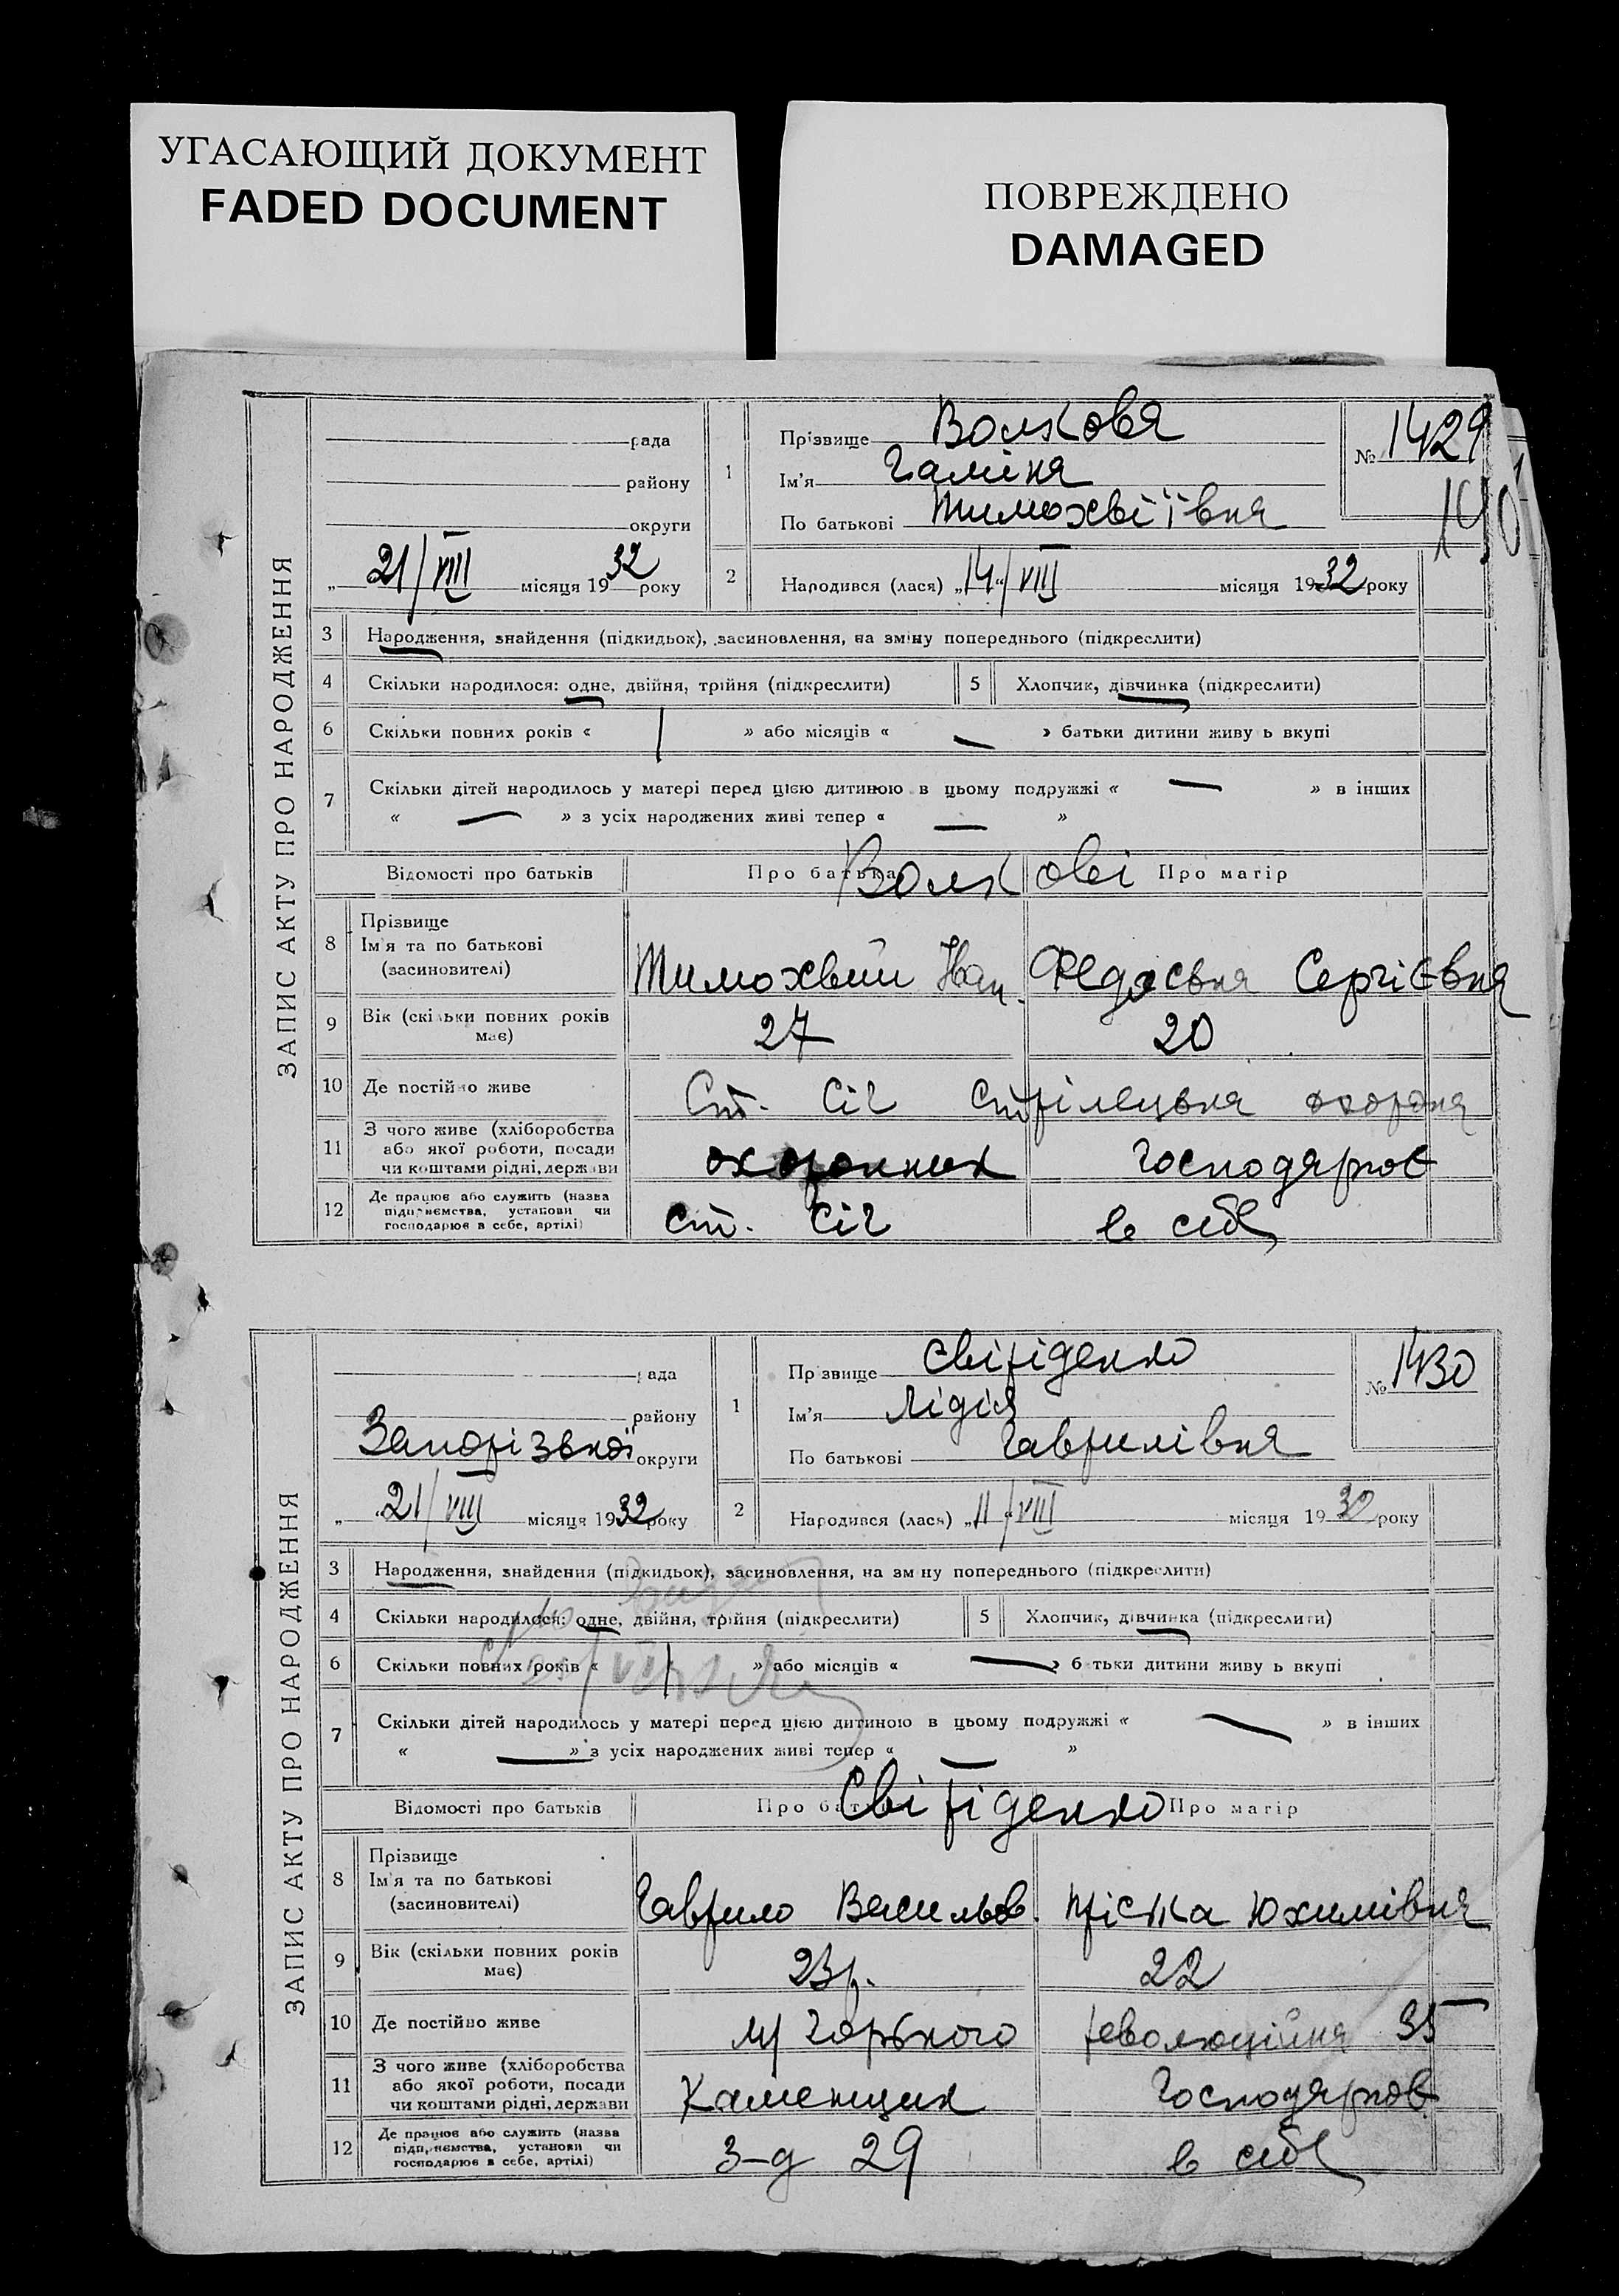 УГАСАЮЩИЙ ДОКУМЕНТ
FADED DOCUMENT
ПОВРЕЖДЕНО
DAMAGED
ЗАПИС АКТУ ПРО НАРОДЖЕННЯ
рада
району
округи
„ 21/VIII місяця 1932 року
1 Прізвище Волкова
Ім'я Галіна
По батькові Тимохвіївна
№ 1429
2 Народився (лася) „14“/VIII місяця 1932 року
3 Народження, знайдення (підкидьок), засиновлення, на зміну попереднього (підкреслити)
4 Скільки народилося: одне, двійня, трійня (підкреслити) 5 Хлопчик, дівчинка (підкреслити)
6 Скільки повних років « 1 » або місяців « — » батьки дитини живу ь вкупі
7 Скільки дітей народилось у матері перед цією дитиною в цьому подружжі « — » в інших
« — » з усіх народжених живі тепер « — »
Відомості про батьків Про батька Про матір
Волкові
8 Прізвище
Ім'я та по батькові
(засиновителі)
Тимохвий Іван. Федосвня Сергієвна
9 Вік (скільки повних років має) 27 20
10 Де постійно живе Ст. Січ Стрілецька охорона
11 З чого живе (хліборобства
або якої роботи, посади
чи коштами рідні, держави
охоронник господарює
12 Де працює або служить (назва
підприємства, установи чи
господарює в себе, артілі)
ст. Січ в себе
ЗАПИС АКТУ ПРО НАРОДЖЕННЯ
рада
району
Запорізької округи
„ 21/VIII місяця 1932 року
1 Пр звище Свіріденко
Ім'я Лідія
По батькові Гаврилівна
№ 1430
2 Народився (лася) „11“/VIII місяця 1932 року
3 Народження, знайдення (підкидьок), засиновлення, на зм ну попереднього (підкреслити)
4 Скільки народилося: одне, двійня, трійня (підкреслити) 5 Хлопчик, дівчинка (підкреслити)
6 Скільки повних років « 1 » або місяців « — » б тьки дитини живу ь вкупі
7 Скільки дітей народилось у матері перед цією дитиною в цьому подружжі « — » в інших
« — » з усіх народжених живі тепер « — »
Відомості про батьків Про бать Про матір
Свіріденко
8 Прізвище
Ім'я та по батькові
(засиновителі)
Гаврило Васильов. Пріська Юхимівна
9 Вік (скільки повних років має) 23 р. 22
10 Де постійно живе Горького революційна 35
11 З чого живе (хліборобства
або якої роботи, посади
чи коштами рідні, держави
Каменщик Господарює
12 Де працює або служить (назва
підприємства, установи чи
господарює в себе, артілі)
З-д 29 в себе